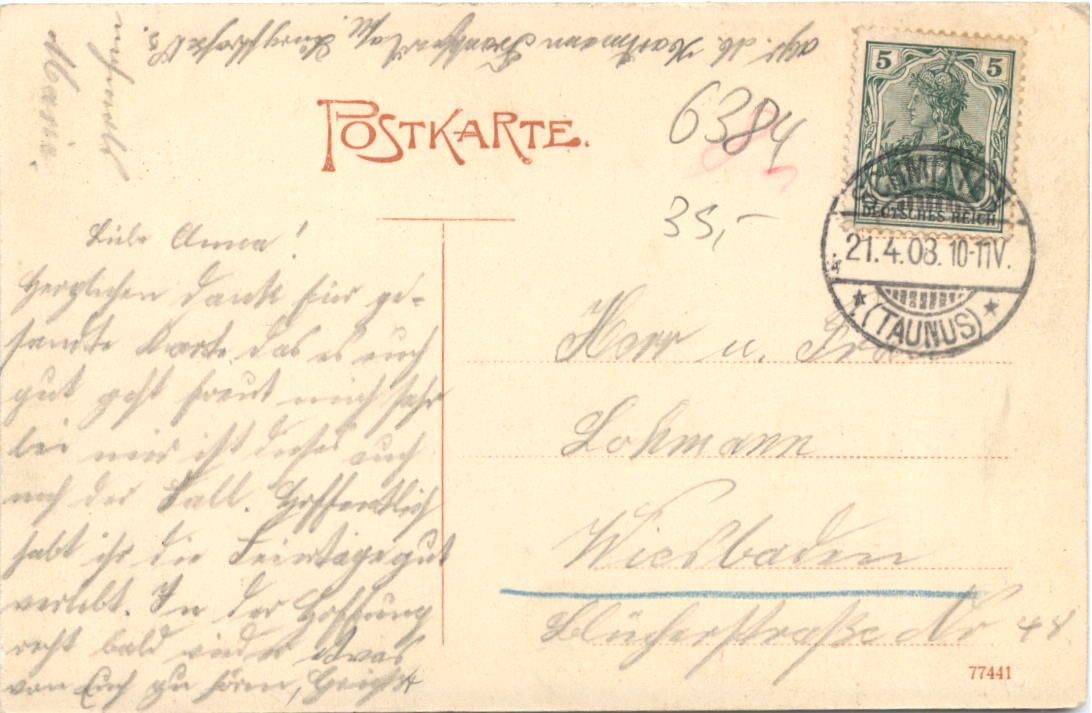 POSTKARTE.
6384
35,-
5 5
DEUTSCHES REICH
SCHMITTEN
21.4.08. 10-11V.
(TAUNUS)
Liebe Anna!
Herzlichen Dank für ge-
sandte Karte das es euch
gut geht freut mich sehr
bei mir ist dieses auch
noch der Fall. Hoffentlich
habt ihr die Feiertage gut
verlebt. In der Hoffnung
recht bald wieder etwas
von Euch zu hören, grüßt
Herr u. Frau
Lohmann
Wiesbaden
Blücherstraße Nr 48
77441
Hartmann Frankfurt